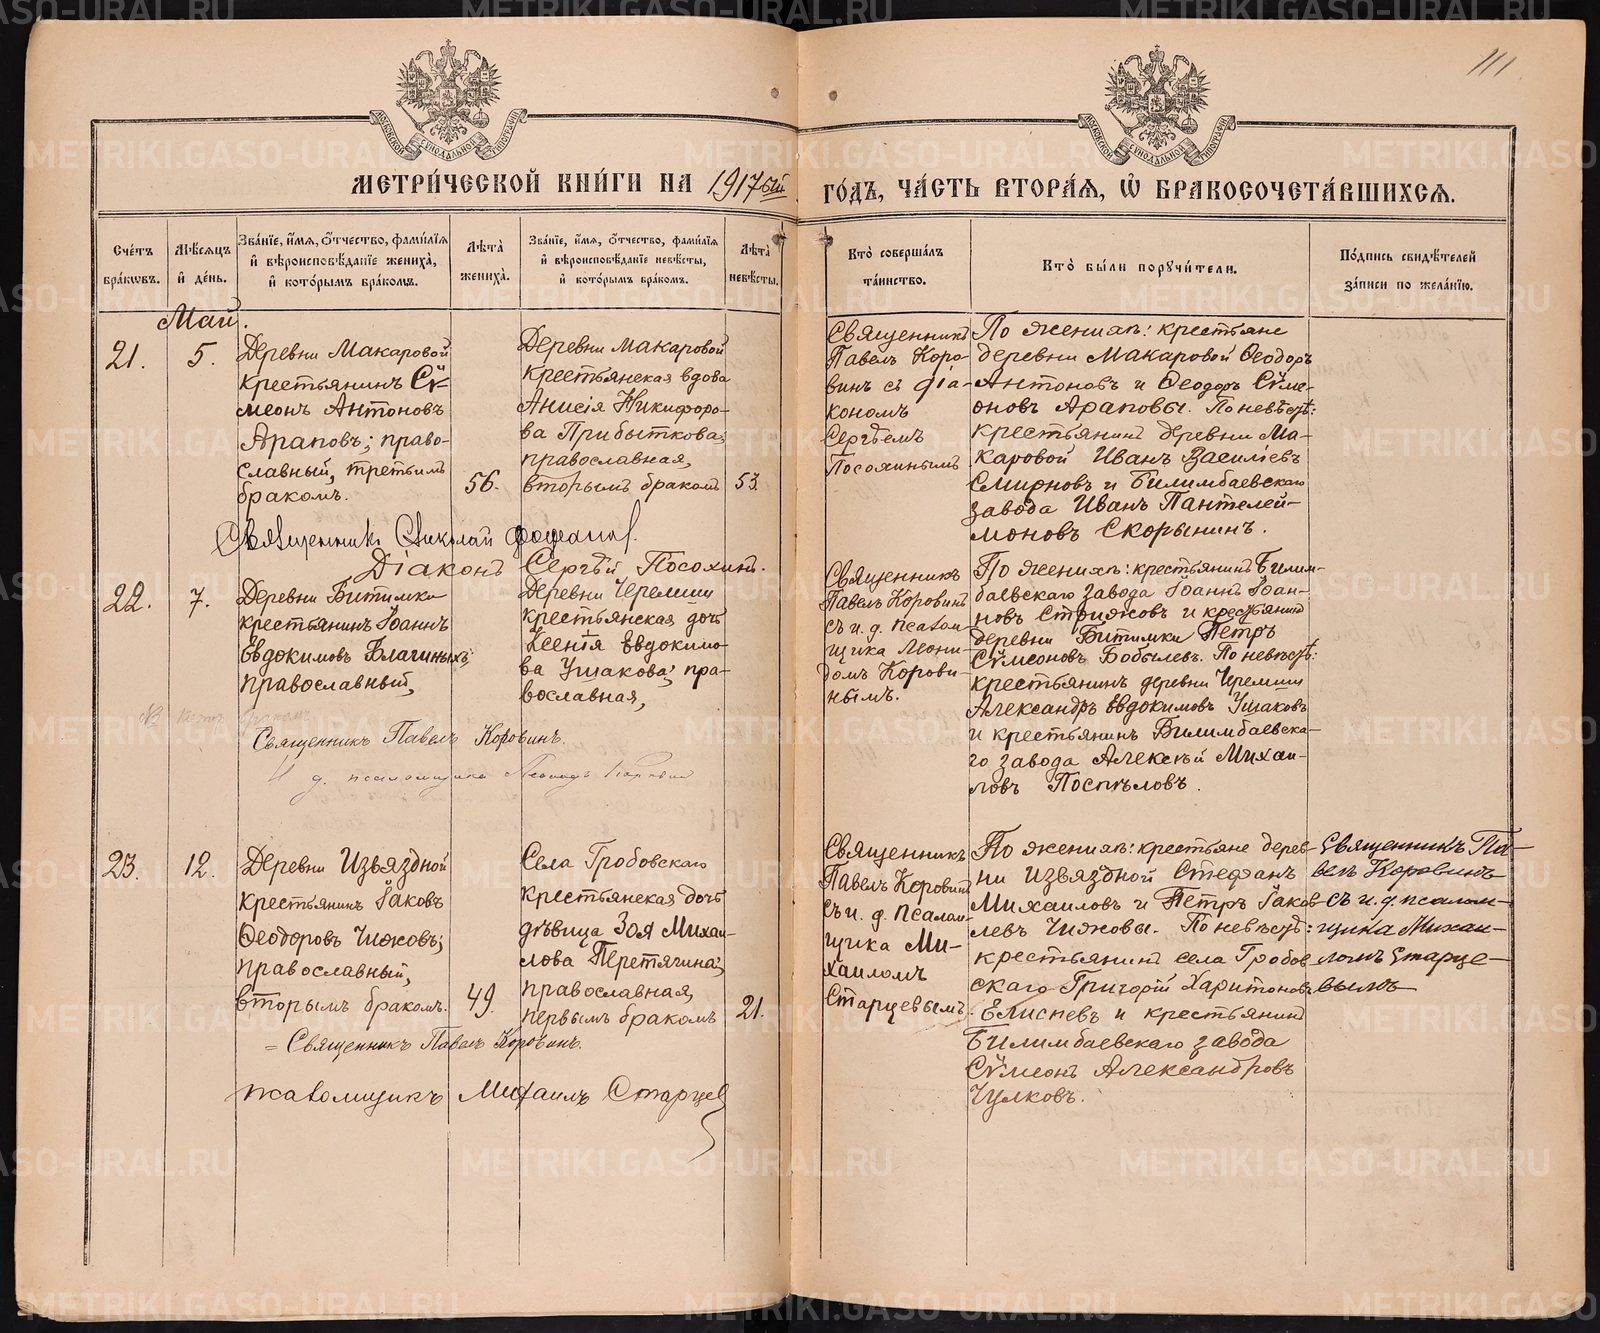 111
МОСКОВСКОЙ СѴНОДАЛЬНОЙ ТИПОГРАФІИ
МОСКОВСКОЙ СѴНОДАЛЬНОЙ ТИПОГРАФІИ
МЕТРИ́ЧЕСКОЙ КНИ́ГИ НА 1917ый ГО́ДЪ, ЧА́СТЬ ВТОРА́Я, Ѡ҆ БРАКОСОЧЕТА́ВШИХСЯ.
Сче́тъ бра́кωвъ.
Мѣ́сяцъ и҆ де́нь.
Зва́нїе, и҆́мя, ѻ҆́тчество, фами́лїя и҆ вѣроисповѣ́данїе жениха̀, и҆ кото́рымъ бра́комъ.
Лѣ́та̀ жениха̀.
Зва́нїе, и҆́мя, ѻ҆́тчество, фами́лїя и҆ вѣроисповѣ́данїе невѣ́сты, и҆ кото́рымъ бра́комъ.
Лѣ́та̀ невѣ́сты.
Кто̀ соверша́лъ та́инство.
Кто̀ бы́ли порꙋчи́тели.
По́дпись свидѣ́телей за́писи по жела́нїю.
Май.
21.
5.
Деревни Макаровой
крестьянинъ Сѵ-
меонъ Антоновъ
Араповъ; право-
славный, третьимъ
бракомъ.
56.
Деревни Макаровой
крестьянская вдова
Анисія Никифоро-
ва Прибыткова;
православная,
вторымъ бракомъ
53.
Священникъ
Павелъ Коро-
винъ съ діа-
кономъ
Сергѣемъ
Посохинымъ
По женихѣ: крестьяне
деревни Макаровой Ѳеодоръ
Антоновъ и Ѳеодоръ Сѵме-
оновъ Араповы. По невѣстѣ:
крестьянинъ деревни Ма-
каровой Иванъ Василіевъ
Смирновъ и Билимбаевскаго
завода Иванъ Пантелей-
моновъ Скорынинъ.
Священникъ Николай
Діаконъ Сергѣй Посохинъ.
22.
7.
Деревни Битимки
крестьянинъ Іоаннъ
Евдокимовъ Благиныхъ;
православный,
Деревни Черемши
крестьянская дочь
Ксенія Евдокимо-
ва Ушакова; пра-
вославная,
Священникъ
Павелъ Коровинъ
съ и. д. псалом-
щика Леони-
домъ Корови-
нымъ.
По женихѣ: крестьянинъ Билим-
баевскаго завода Іоаннъ Іоан-
новъ Стрижовъ и крестьянинъ
деревни Битимки Петръ
Сѵмеоновъ Бобылевъ. По невѣстѣ:
крестьянинъ деревни Черемши
Александръ Евдокимовъ Ушаковъ
и крестьянинъ Билимбаевска-
го завода Алексѣй Михаи-
ловъ Поспѣловъ.
Священникъ Павелъ Коровинъ.
И. д. псаломщика Леонидъ Коровинъ
23.
12.
Деревни Извяздной
крестьянинъ Іаковъ
Ѳеодоровъ Чижовъ;
православный,
вторымъ бракомъ.
49.
Села Гробовскаго
крестьянская дочь
дѣвица Зоя Михаи-
лова Перетягина;
православная,
первымъ бракомъ
21.
Священникъ
Павелъ Коровинъ
съ и. д. псалом-
щика Ми-
хаиломъ
Старцевымъ.
По женихѣ: крестьяне дерев-
ни Извяздной Стефанъ
Михаиловъ и Петръ Іаков-
левъ Чижовы. По невѣстѣ:
крестьянинъ села Гробов-
скаго Григорій Харитоновъ
Елисѣевъ и крестьянинъ
Билимбаевскаго завода
Сѵмеонъ Александровъ
Чулковъ.
Священникъ Па-
велъ Коровинъ
съ и. д. псалом-
щика Михаи-
ломъ Старце-
вымъ
= Священникъ Павелъ Коровинъ.
псаломщикъ Михаилъ Старцев
METRIKI.GASO-URAL.RU